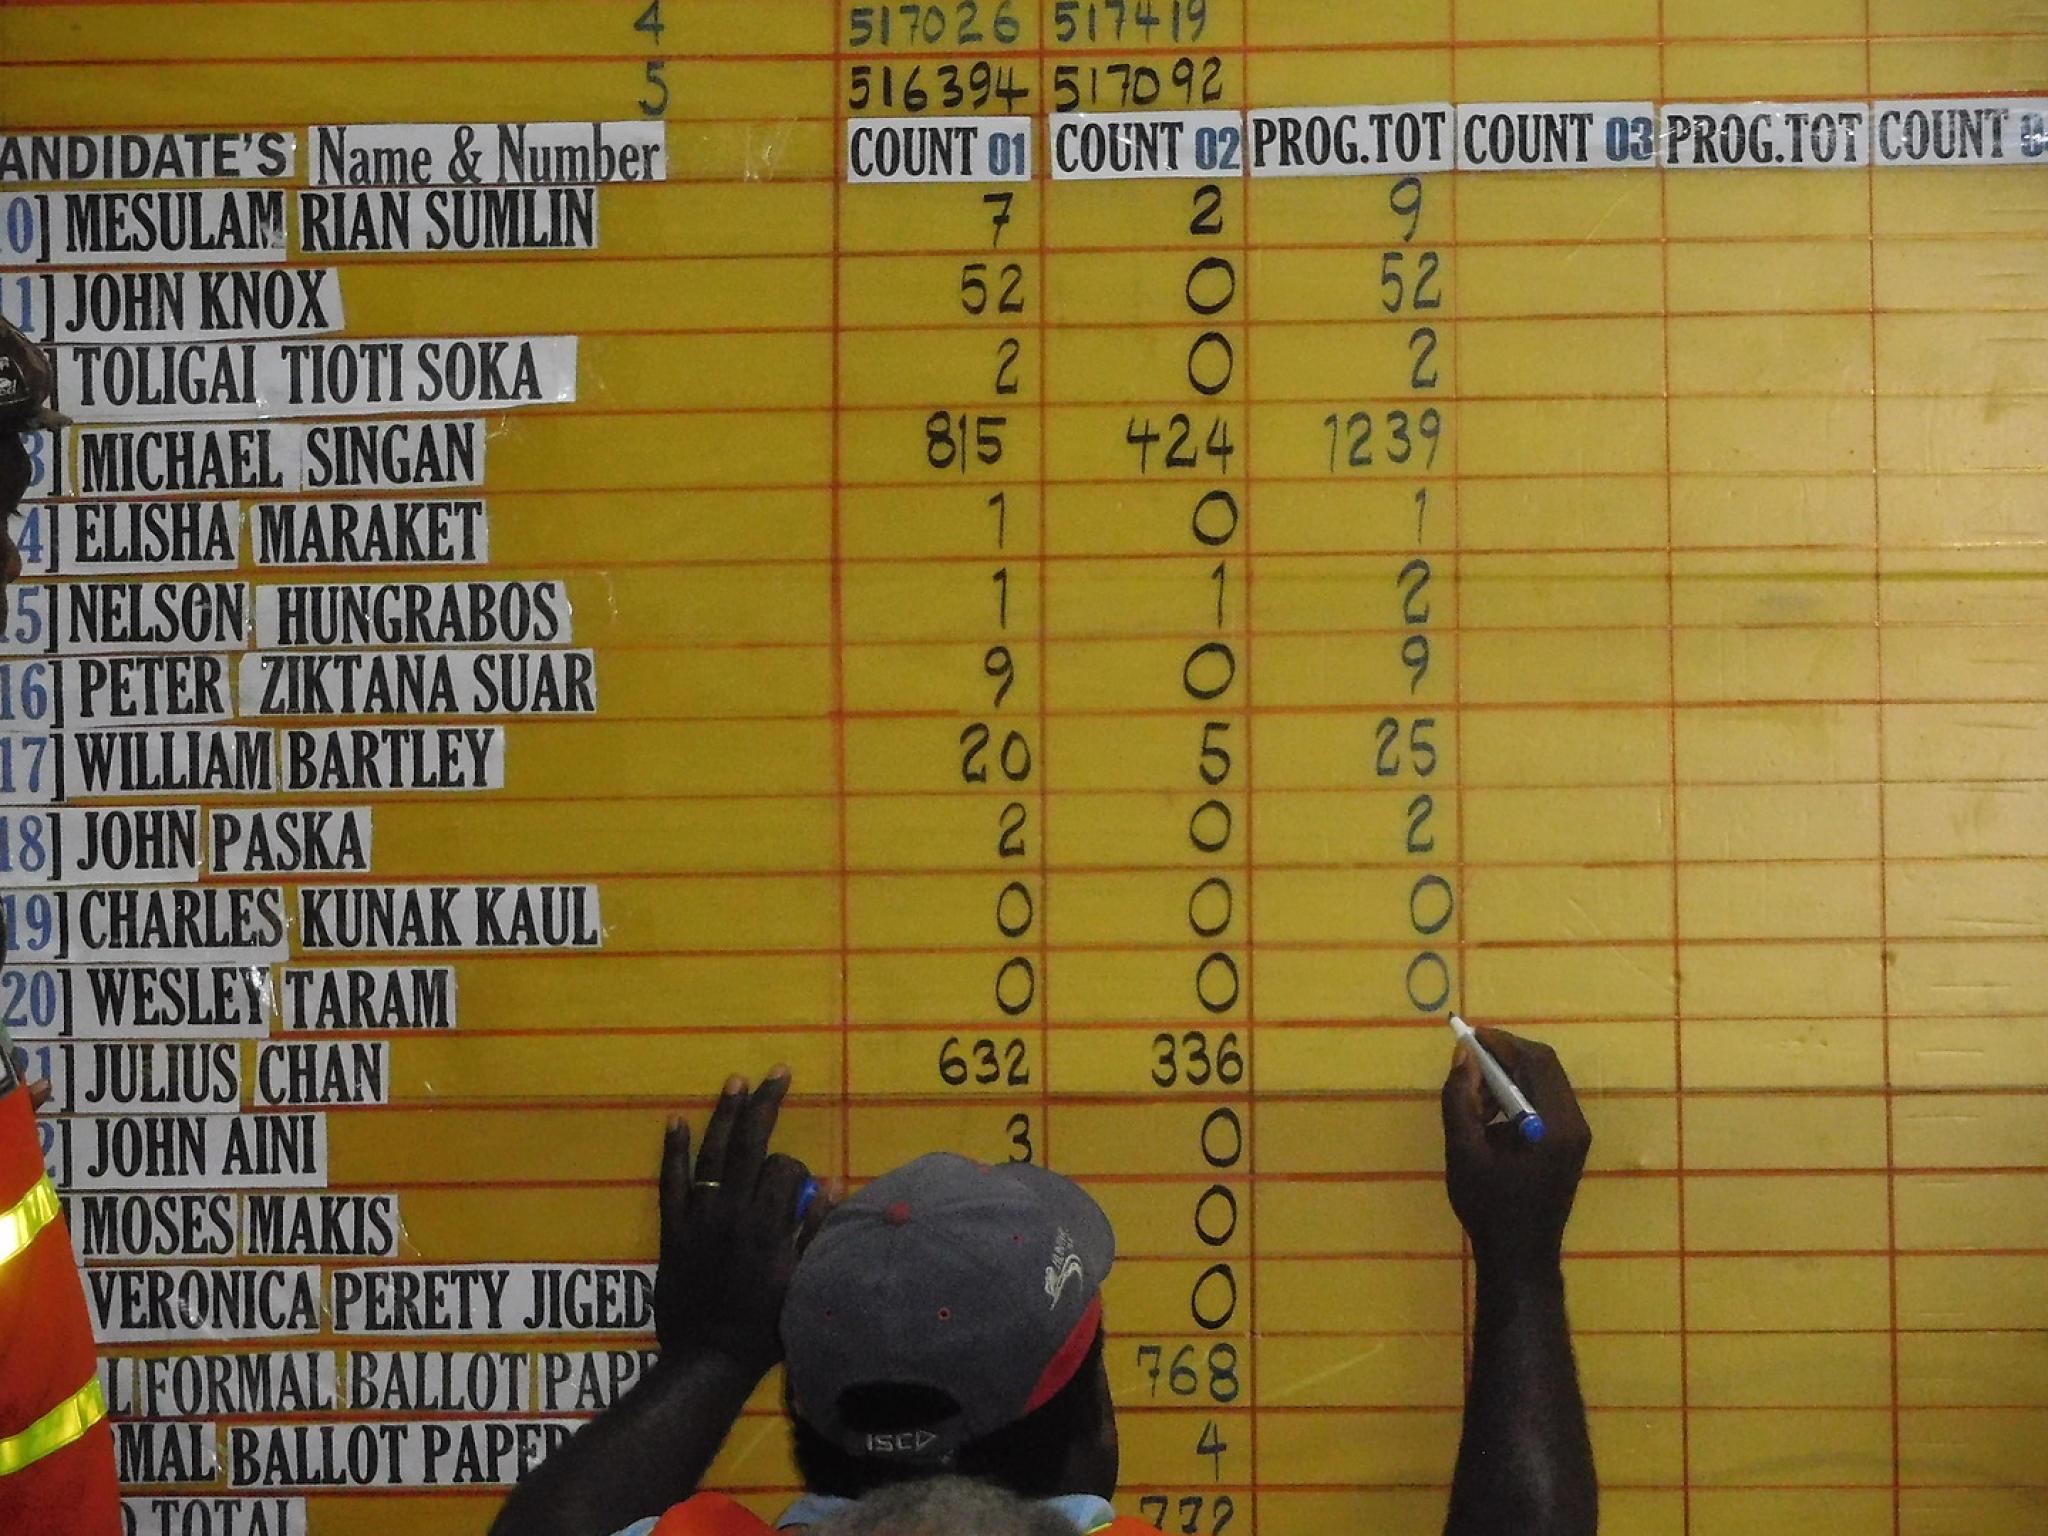 4 517026 517419
5 516394 517092
ANDIDATE'S Name & Number COUNT 01 COUNT 02 PROG.TOT COUNT 03 PROG.TOT COUNT
0] MESULAM RIAN SUMLIN 7 2 9
1] JOHN KNOX 52 0 52
] TOLIGAI TIOTI SOKA 2 0 2
3] MICHAEL SINGAN 815 424 1239
4] ELISHA MARAKET 1 0 1
15] NELSON HUNGRABOS 1 1 2
16] PETER ZIKTANA SUAR 9 0 9
17] WILLIAM BARTLEY 20 5 25
18] JOHN PASKA 2 0 2
19] CHARLES KUNAK KAUL 0 0 0
20] WESLEY TARAM 0 0 0
21] JULIUS CHAN 632 336
2] JOHN AINI 3 0
MOSES MAKIS 0
VERONICA PERETY JIGED 0
L FORMAL BALLOT PAP 768
MAL BALLOT PAPER 4
TOTAL 772
ISC